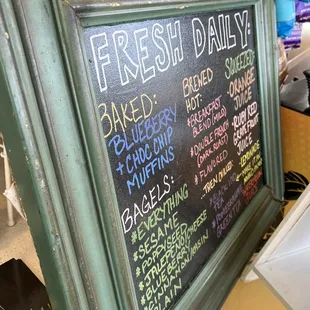 FRESH DAILY:
BAKED:
BLUEBERRY
+ CHOC CHIP
MUFFINS
BAGELS:
*EVERYTHING
*SESAME
*POPPYSEED
*JALEPENO CHEESE
*BLUEBERRY
*CINNAMON/RAISIN
*PLAIN
BREWED
HOT:
*BREAKFAST
BLEND (MILD)
*DOUBLE FRENCH
(DARK ROAST)
*FLAVORED
...THEN CHILLED
SQUEEZED:
-ORANGE
JUICE
-RUBY RED
GRAPEFRUIT
JUICE
-LEMONADE